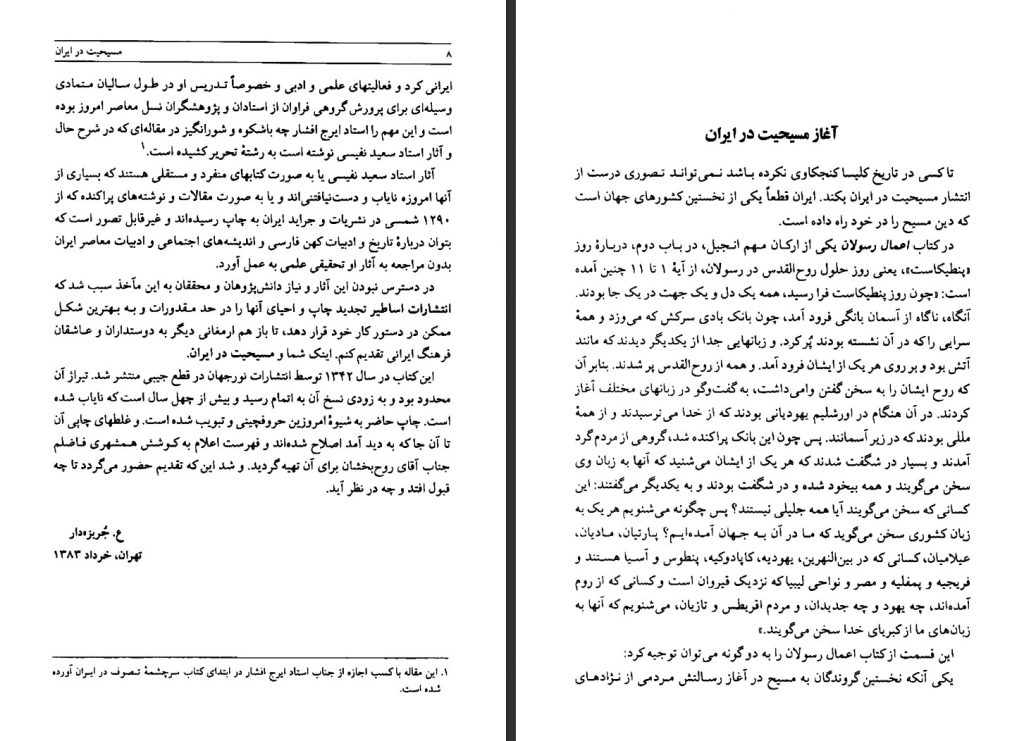 ۸
مسیحیت در ایران
ایرانی کرد و فعالیتهای علمی و ادبی و خصوصاً تدریس او در طول سالیان متمادی
وسیله‌ای برای پرورش گروهی فراوان از استادان و پژوهشگران نسل معاصر امروز بوده
است و این مهم را استاد ایرج افشار چه باشکوه و شورانگیز در مقاله‌ای که در شرح حال
و آثار استاد سعید نفیسی نوشته است به رشتهٔ تحریر کشیده است.۱
آثار استاد سعید نفیسی یا به صورت کتابهای منفرد و مستقلی هستند که بسیاری از
آنها امروزه نایاب و دست‌نیافتنی‌اند و یا به صورت مقالات و نوشته‌های پراکنده که از
۱۲۹۰ شمسی در نشریات و جراید ایران به چاپ رسیده‌اند و غیرقابل تصور است که
بتوان دربارهٔ تاریخ و ادبیات کهن فارسی و اندیشه‌های اجتماعی و ادبیات معاصر ایران
بدون مراجعه به آثار او تحقیقی علمی به عمل آورد.
در دسترس نبودن این آثار و نیاز دانش‌پژوهان و محققان به این مآخذ سبب شد که
انتشارات اساطیر تجدید چاپ و احیای آنها را در حد مقدورات و به بهترین شکل
ممکن در دستور کار خود قرار دهد، تا باز هم ارمغانی دیگر به دوستداران و عاشقان
فرهنگ ایرانی تقدیم کنم. اینک شما و مسیحیت در ایران.
این کتاب در سال ۱۳۴۲ توسط انتشارات نورجهان در قطع جیبی منتشر شد. تیراژ آن
محدود بود و به زودی نسخ آن به اتمام رسید و بیش از چهل سال است که نایاب شده
است. چاپ حاضر به شیوهٔ امروزین حروفچینی و تبویب شده است. و غلطهای چاپی آن
تا آن جا که به دید آمد اصلاح شده‌اند و فهرست اعلام به کوشش همشهری فاضلم
جناب آقای روح‌بخشان برای آن تهیه گردید. و شد این که تقدیم حضور می‌گردد تا چه
قبول افتد و چه در نظر آید.
ع. جُربزه‌دار
تهران، خرداد ۱۳۸۳
۱. این مقاله با کسب اجازه از جناب استاد ایرج افشار در ابتدای کتاب سرچشمهٔ تصوف در ایران آورده
شده است.
آغاز مسیحیت در ایران
تا کسی در تاریخ کلیسا کنجکاوی نکرده باشد نمی‌تواند تصوری درست از
انتشار مسیحیت در ایران بکند. ایران قطعاً یکی از نخستین کشورهای جهان است
که دین مسیح را در خود راه داده است.
در کتاب اعمال رسولان یکی از ارکان مهم انجیل، در باب دوم، دربارهٔ روز
«پنطیکاست»، یعنی روز حلول روح‌القدس در رسولان، از آیهٔ ۱ تا ۱۱ چنین آمده
است: «چون روز پنطیکاست فرا رسید، همه یک دل و یک جهت در یک جا بودند.
آنگاه، ناگاه از آسمان بانگی فرود آمد، چون بانک بادی سرکش که می‌وزد و همهٔ
سرایی را که در آن نشسته بودند پُر کرد. و زبانهایی جدا از یکدیگر دیدند که مانند
آتش بود و بر روی هر یک از ایشان فرود آمد. و همه از روح‌القدس پر شدند. بنابر آن
که روح ایشان را به سخن گفتن وامی‌داشت، به گفت‌وگو در زبانهای مختلف آغاز
کردند. در آن هنگام در اورشلیم یهودیانی بودند که از خدا می‌ترسیدند و از همهٔ
مللی بودند که در زیر آسمانند. پس چون این بانک پراکنده شد، گروهی از مردم گرد
آمدند و بسیار در شگفت شدند که هر یک از ایشان می‌شنید که آنها به زبان وی
سخن می‌گویند و همه بیخود شده و در شگفت بودند و به یکدیگر می‌گفتند: این
کسانی که سخن می‌گویند آیا همه جلیلی نیستند؟ پس چگونه می‌شنویم هر یک به
زبان کشوری سخن می‌گوید که ما در آن به جهان آمده‌ایم؟ پارتیان، مادیان،
عیلامیان، کسانی که در بین‌النهرین، یهودیه، کاپادوکیه، پنطوس و آسیا هستند و
فریجیه و پمفلیه و مصر و نواحی لیبیا که نزدیک قیروان است و کسانی که از روم
آمده‌اند، چه یهود و چه جدیدان، و مردم اقریطس و تازیان، می‌شنویم که آنها به
زبان‌های ما از کبریای خدا سخن می‌گویند.»
این قسمت از کتاب اعمال رسولان را به دو گونه می‌توان توجیه کرد:
یکی آنکه نخستین گروندگان به مسیح در آغاز رسالتش مردمی از نژادهای